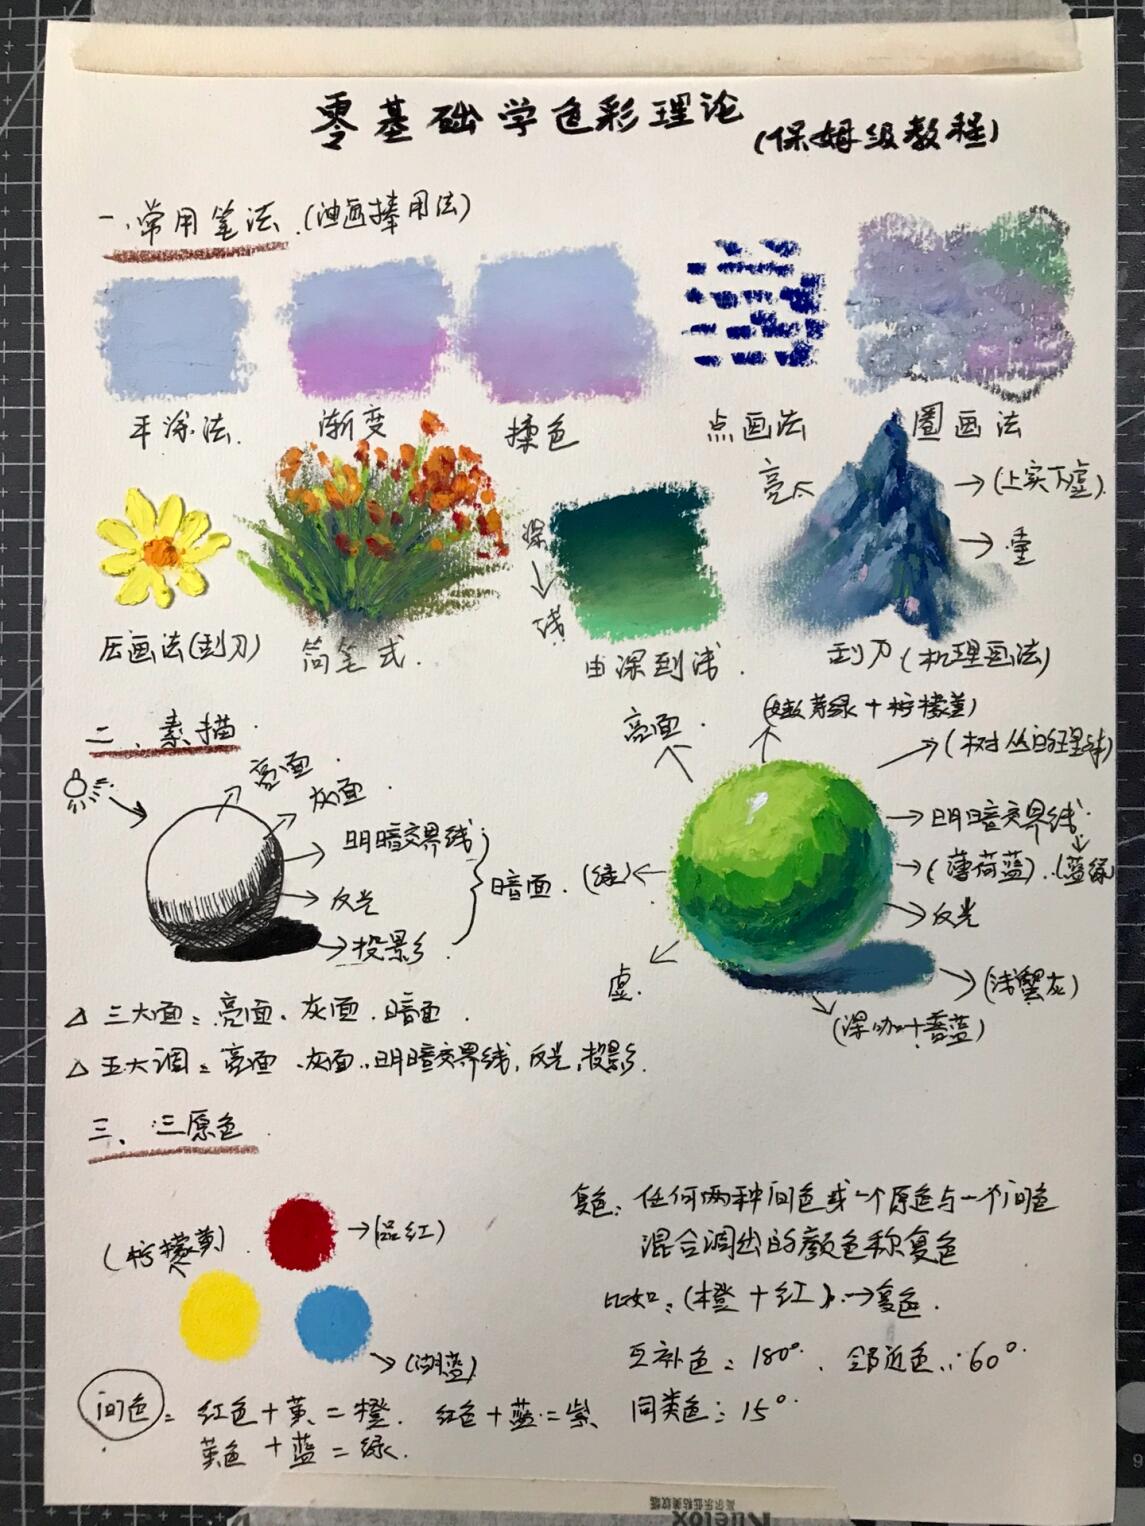 零基础学色彩理论
(保姆级教程)
一.常用笔法.(油画棒用法)
平涂法.
渐变
揉色
点画法
圈画法
压画法(刮刀)
简笔式.
深
浅
由深到浅.
亮
(上实下虚)
刮刀(机理画法)
二、素描.
亮面.
灰面.
明暗交界线
反光
投影.
暗面.
亮面.
(嫩芽绿+柠檬黄)
明暗交界线
(薄荷蓝).(蓝绿
(绿)
反光
虚.
(浅蟹灰)
△ 三大面:亮面、灰面.暗面.
△ 五大调:亮面、灰面、明暗交界线,反光,投影.
三、三原色.
(柠檬黄)
(品红)
(湖蓝)
复色:任何两种间色或一个原色与一个间色
混合调出的颜色称复色
比如:(橙+红)→复色.
互补色:180°.邻近色:60°.
间色:红色+黄=橙.红色+蓝=紫
同类色:15°.
黄色+蓝=绿.